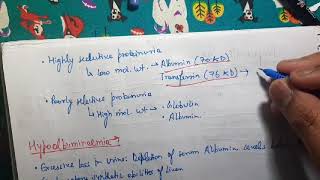 • Highly selective proteinuria
↳ Low mol. wt. → Albumin (70 KD)
Transferrin (76 KD) →
• Poorly selective proteinuria
↳ High mol. wt. → • Globulin
• Albumin.
Hypoalbuminaemia →
• Excessive loss in urine: Depletion of serum Albumin levels
synthetic abilities of liver